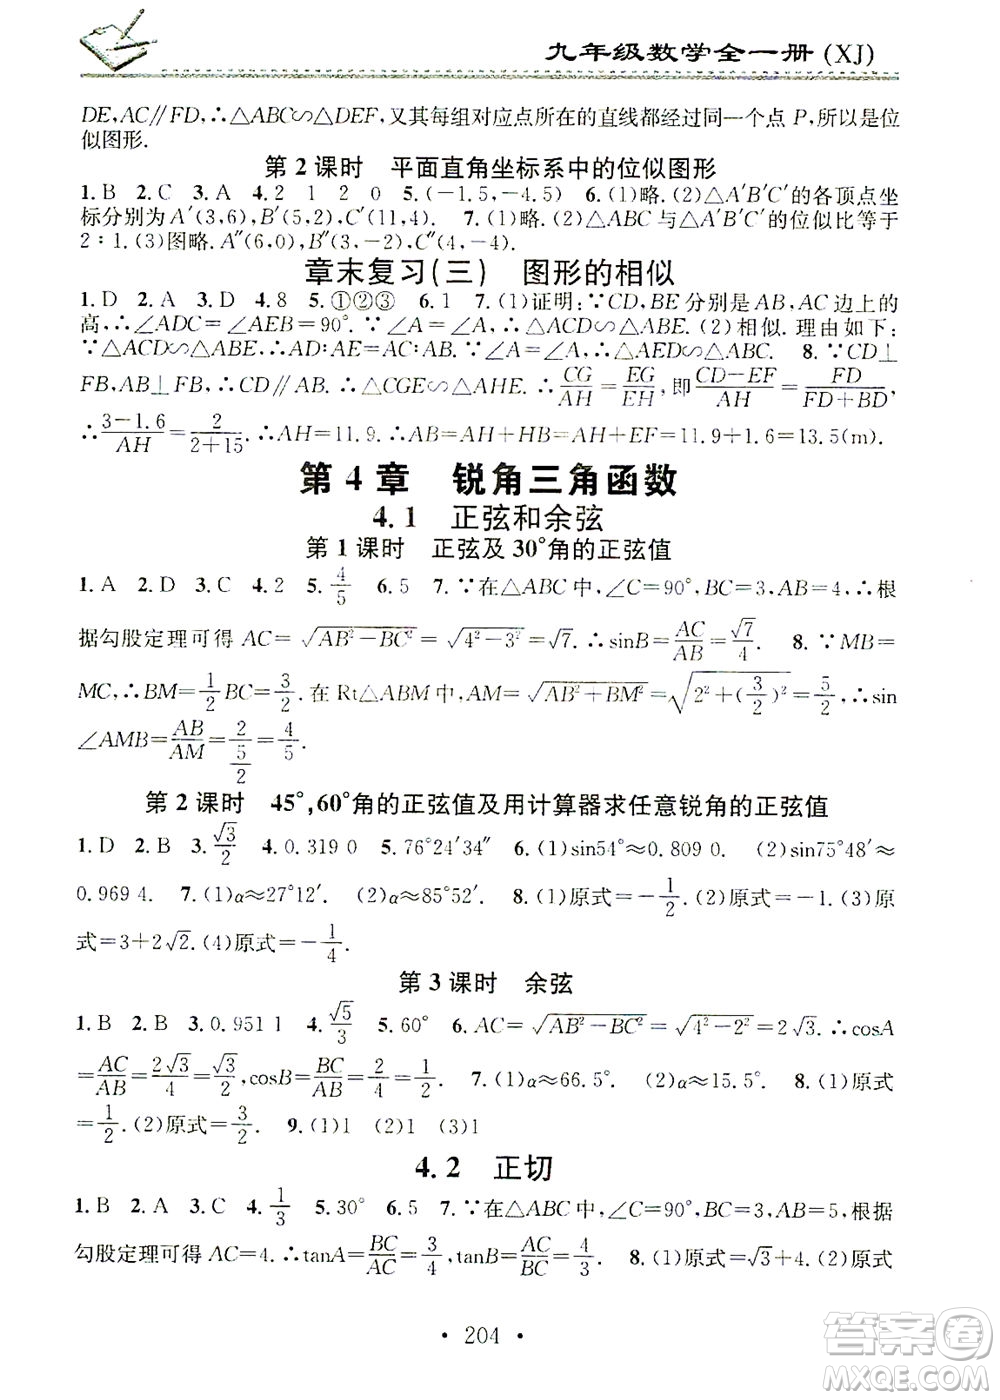 九年级数学全一册(XJ)
DE,AC∥FD,∴△ABC∽△DEF,又其每组对应点所在的直线都经过同一个点 P,所以是位
似图形.
第 2 课时　平面直角坐标系中的位似图形
1. B　2. C　3. A　4. 2　1　2　0　5. (−1.5,−4.5)　6. (1)略. (2)△A′B′C′的各顶点坐
标分别为 A′(3,6),B′(5,2),C′(11,4).　7. (1)略. (2)△ABC 与△A′B′C′的位似比等于
2∶1. (3)图略. A″(6,0),B″(4,−2),C″(4,−4).
章末复习(三)　图形的相似
1. D　2. D　3. A　4. 8　5. ①②③　6. 1　7. (1)证明:∵CD,BE 分别是 AB,AC 边上的
高,∴∠ADC=∠AEB=90°. ∵∠A=∠A,∴△ACD∽△ABE. (2)相似. 理由如下:
∵△ACD∽△ABE,∴AD∶AE=AC∶AB. ∵∠A=∠A,∴△AED∽△ABC.　8. ∵CD⊥
FB,AB⊥FB,∴CD∥AB. ∴△CGE∽△AHE. ∴CG/AH=EG/EH,即(CD−EF)/AH=FD/(FD+BD),
∴(3−1.6)/AH=2/(2+15). ∴AH=11.9. ∴AB=AH+HB=AH+EF=11.9+1.6=13.5(m).
第 4 章　锐角三角函数
4.1　正弦和余弦
第 1 课时　正弦及 30°角的正弦值
1. A　2. D　3. C　4. 2　5. 4/5　6. 5　7. ∵在△ABC 中,∠C=90°,BC=3,AB=4,∴根
据勾股定理可得 AC=√(AB²−BC²)=√(4²−3²)=√7. ∴sinB=AC/AB=√7/4.　8. ∵MB=
MC,∴BM=1/2BC=3/2. 在 Rt△ABM 中,AM=√(AB²+BM²)=√(2²+(3/2)²)=5/2,∴sin
∠AMB=AB/AM=2/(5/2)=4/5.
第 2 课时　45°,60°角的正弦值及用计算器求任意锐角的正弦值
1. D　2. B　3. √3/2　4. 0.319 0　5. 76°24′34″　6. (1)sin54°≈0.809 0.　(2)sin75°48′≈
0.969 4.　7. (1)α≈27°12′.　(2)α≈85°52′.　8. (1)原式=−1/2. (2)原式=−1. (3)原
式=3+2√2. (4)原式=−1/4.
第 3 课时　余弦
1. B　2. B　3. 0.951 1　4. √5/3　5. 60°　6. AC=√(AB²−BC²)=√(4²−2²)=2√3. ∴cosA
=AC/AB=2√3/4=√3/2,cosB=BC/AB=2/4=1/2.　7. (1)α≈66.5°.　(2)α≈15.5°.　8. (1)原式
=1/2. (2)原式=3/2.　9. (1)1　(2)1　(3)1
4.2　正切
1. B　2. A　3. C　4. 1/3　5. 30°　6. 5　7. ∵在△ABC 中,∠C=90°,BC=3,AB=5,根据
勾股定理可得 AC=4. ∴tanA=BC/AC=3/4,tanB=AC/BC=4/3.　8. (1)原式=√3+4. (2)原式
· 204 ·
答案卷
MXQE.COM